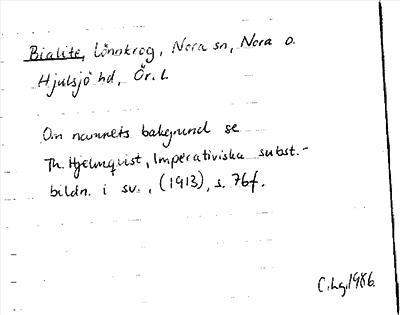 Bialite, Lönnkrog, Nora sn, Nora o.
Hjulsjö hd, Ör. l.
Om namnets bakgrund se
Th. Hjelmqvist, Imperativiska subst.-
bildn. i sv., (1913), s. 76f.
C.hg.1986.